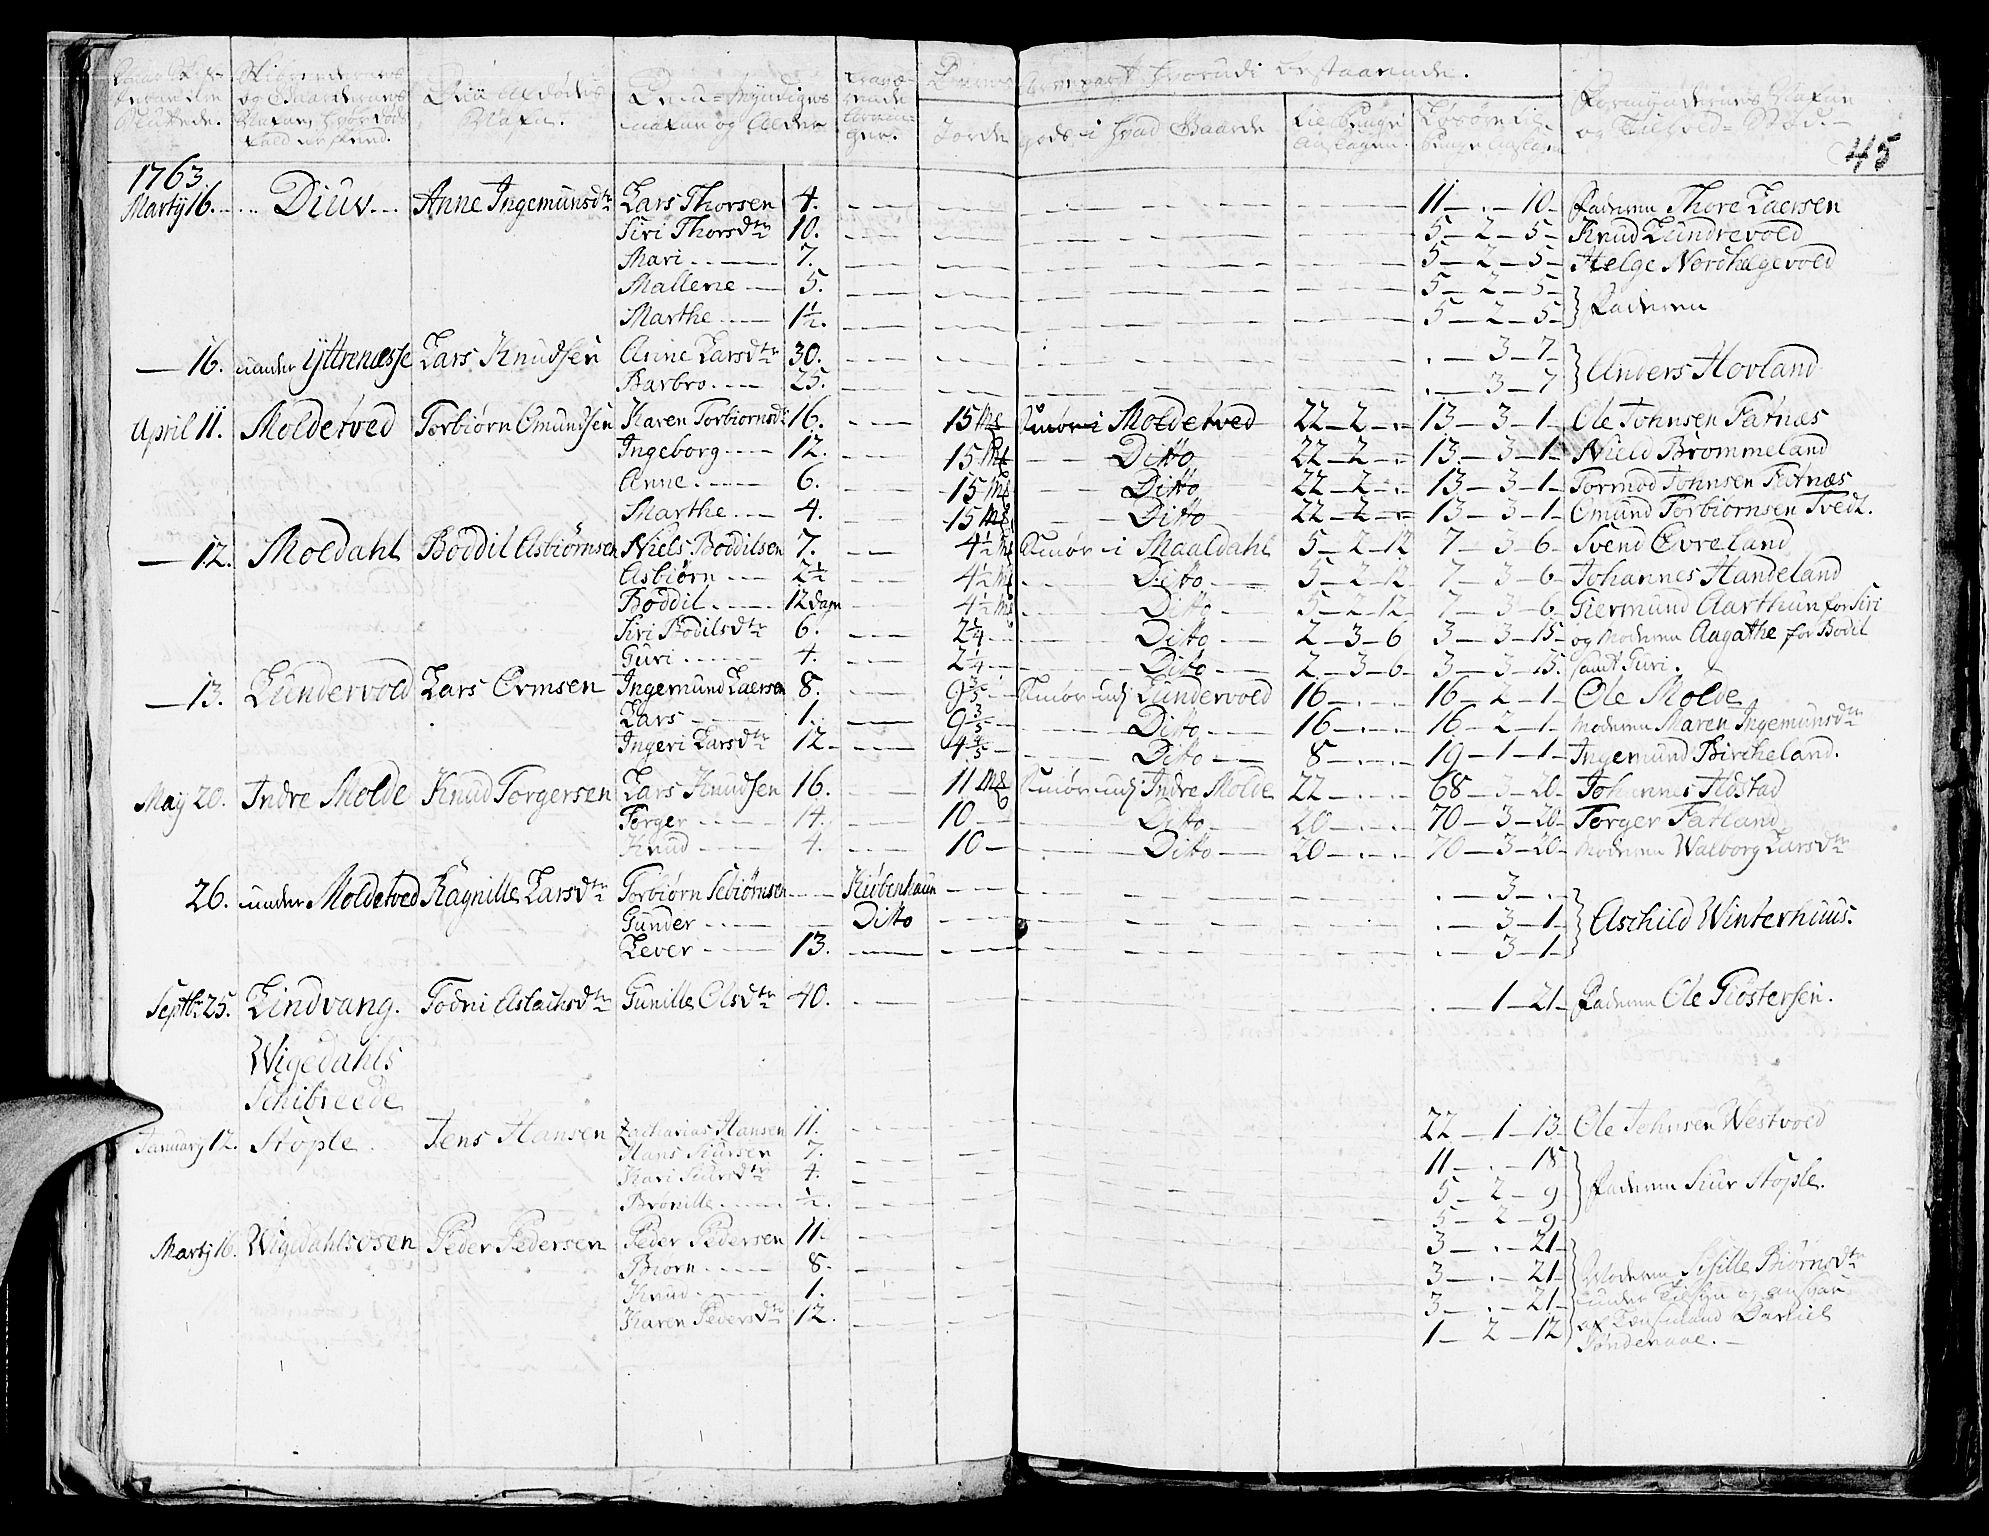 Skiøgerdernes og Gaardernes Nafne
Arvepart hvorudi bestaaende.
Jorde gods i hvad Gaarde
Formyndernes Nafne og Tilhold-Stød
45
1763
Martÿ 16. Diuv Anne Ingemunsdtr Lars Thorsen 4. 11 - . - 10 Faderen Thore Laersen
Siri Thorsdtr 10. 5 - 2 - 5 Knud Lundrevold
Mari 7. 5 - 2 - 5 Helge Nordhelgevold
Mallene 5. 5 - 2 - 5
Marthe 1½. 5 - 2 - 5 Faderen
16. under Yttrenæsse Lars Knudsen Anne Larsdtr 30. . - 3 - 7 Anders Hovland
Barbro 25. . - 3 - 7
April 11. Moldetved Torbiørn Omundsen Karen Torbiornsdr 16. 15 Mk Smør i Moldetved 22 - 2 - . 13 - 3 - 1 Ole Johnsen Fatnæs
Ingeborg 12. 15 Mk Ditto 22 - 2 - . 13 - 3 - 1 Nield Brommeland
Anne 6. 15 Mk Ditto 22 - 2 - . 13 - 3 - 1 Tormod Johnsen Fatnæs
Marthe 4. 15 Mk Ditto 22 - 2 - . 13 - 3 - 1 Omund Torbiornsen Tvedt.
12. Moldahl Boddil Asbiørnsen Niels Boddilsen 7. 4½ Mk Smør i Maaldahl 5 - 2 - 12 7 - 3 - 6 Svend Øvreland
Asbiørn 2½ 4½ Mk Ditto 5 - 2 - 12 7 - 3 - 6 Johannes Handeland
Boddil 12 Dage 4½ Mk Ditto 5 - 2 - 12 7 - 3 - 6 Giermund Aarthun for Siri
Siri Bodilsdtr 6. 2¼ Ditto 2 - 3 - 6 3 - 3 - 15 og Moderen Aagathe for Bodil
Guri 4. 2¼ Ditto 2 - 3 - 6 3 - 3 - 15 samt Guri.
13. Lundervold Lars Ormsen Ingemund Laersen 8. 9⅗ Smør udj Lundervold 16 - . - . 16 - 2 - 1 Ole Molde
Lars 1. 9⅗ Ditto 16 - . - . 16 - 2 - 1 Moderen Maren Ingemunsdtr
Ingeri Larsdtr 12. 4⅘ Ditto 8 - . - . 19 - 1 - 1 Ingemund Bircheland.
May 20. Indre Molde Knud Torgersen Lars Knudsen 16. 11 Mk Smør udj Indre Molde 22 - . - . 68 - 3 - 20 Johannes Høstad
Torger 14. 10 Ditto 20 - . - . 70 - 3 - 20 Torger Fatland
Knud 4. 10 Ditto 20 - . - . 70 - 3 - 20 Moderen Walborg Larsdtr
26. under Moldetved Ragnille Larsdtr Torbiørn Sebiørnsen Kiøbenhaun . - 3 - .
Gunder Ditto . - 3 - 1 Aschild Winterhuus.
Lever 13. . - 3 - 1
Septbr 25. Lindvang. Todni Aslachsdtr Gunille Olsdtr 40. . - 1 - 21 Faderen Ole Giøstersen.
Wigedahls
Schibreede
January 12. Stople Jens Hansen Zacharias Hansen 11. 22 - 1 - 13 Ole Johnsen Westvold
Hans Siursen 7. 11 - . - 18
Kari Siursdtr 4. 5 - 2 - 9 Faderen Siur Stople.
Brønille ½. 5 - 2 - 9
Martÿ 16. Wigedahlsosen Peder Pedersen Peder Pedersen 11. 3 - . - 21
Biorn 8. 3 - . - 21 Moderen Sisille Biørnsdtr
Knud 1. 3 - . - 21 under Tilsyn og ansvar
Karen Pedersdtr 12. 1 - 2 - 12 af Lensmand Daniel
Tøndenaae.